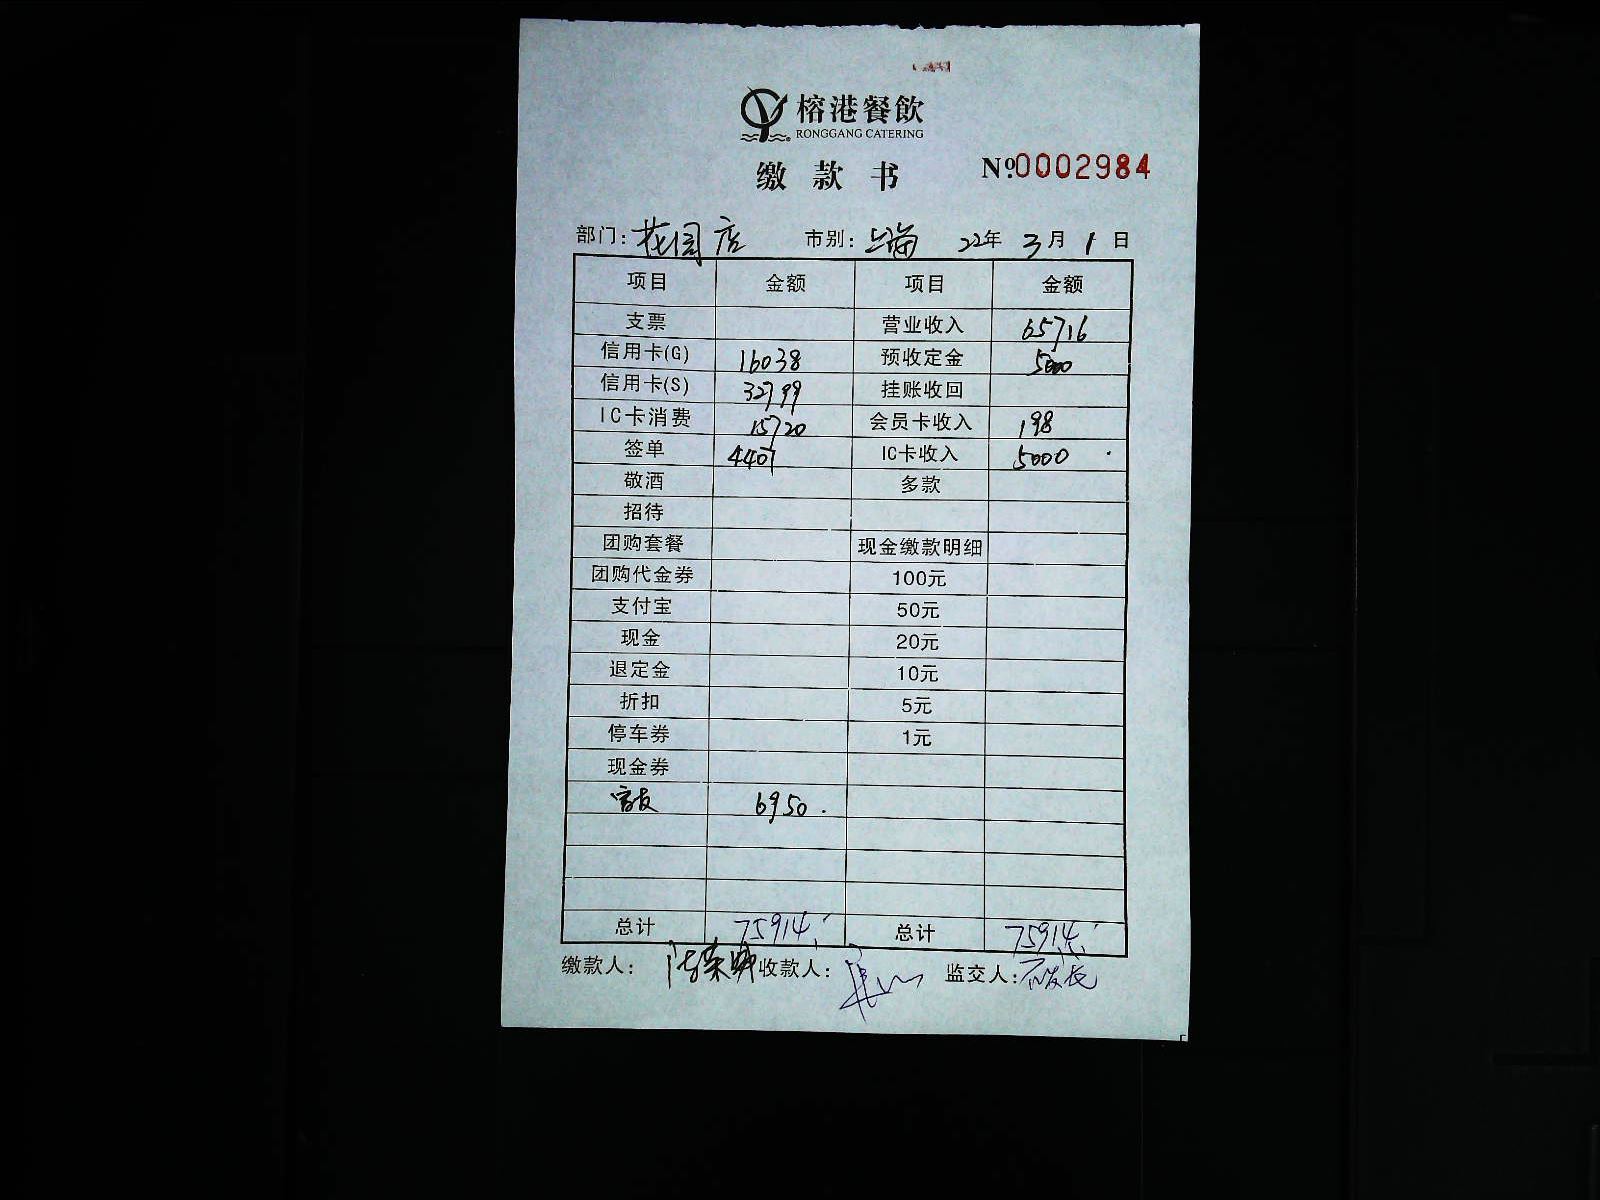 榕港餐飲
RONGGANG CATERING
缴款书 №0002984
部门: 花园店 市别: 上海 22年 3月 1日
项目 金额 项目 金额
支票 营业收入 65716
信用卡(G) 16038 预收定金 5000
信用卡(S) 32799 挂账收回
IC卡消费 15720 会员卡收入 198
签单 4407 IC卡收入 5000
敬酒 多款
招待
团购套餐 现金缴款明细
团购代金券 100元
支付宝 50元
现金 20元
退定金 10元
折扣 5元
停车券 1元
现金券
6950.
总计 75914 总计 75914
缴款人: 收款人: 监交人: